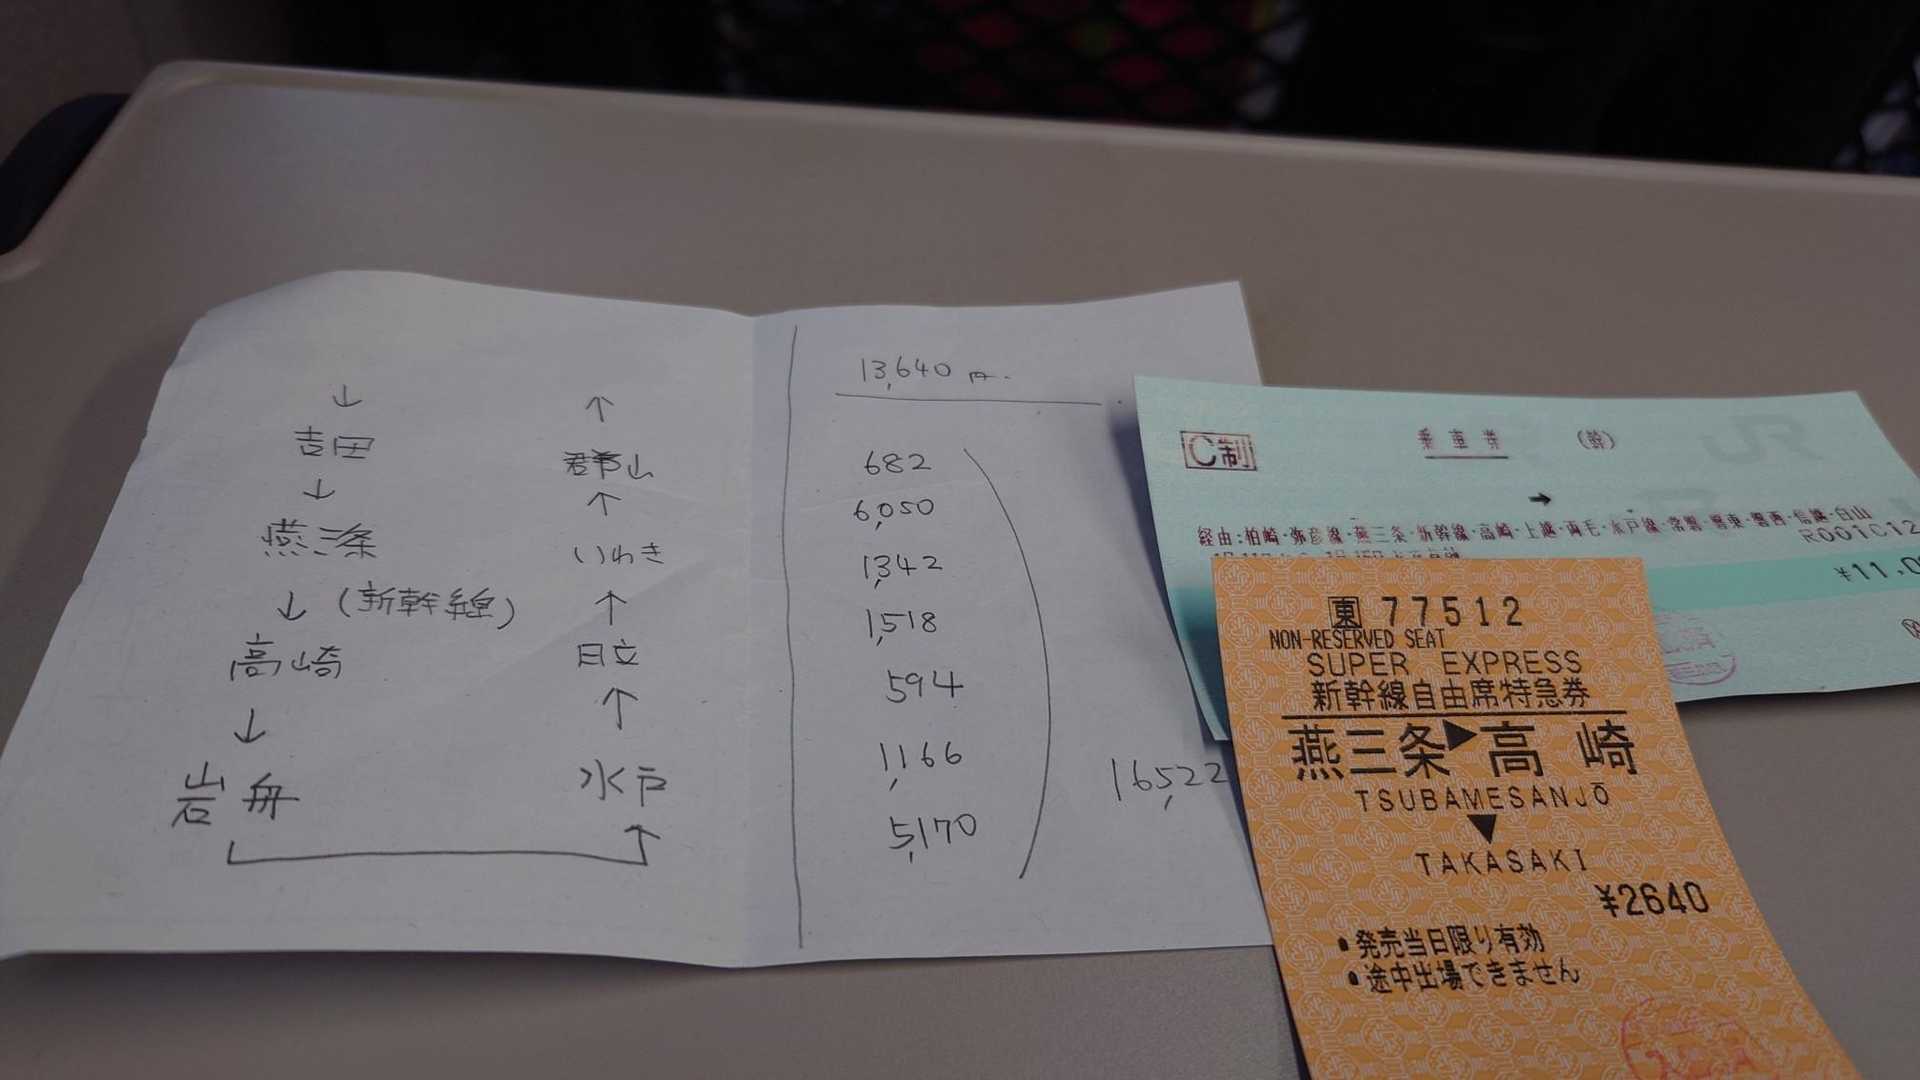 ↓
吉田
↓
燕三条
↓ (新幹線)
高崎
↓
岩舟
↑
郡山
↑
いわき
↑
日立
↑
水戸
13,640 円.
682
6,050
1,342
1,518
594
1,166
5,170
16,522
C制 乗車券 (幹)
→
経由:柏崎・弥彦線・燕三条・新幹線・高崎・上越・両毛・水戸線・常磐・磐東・磐西・信越・白山
R001C12
¥11,0
東 77512
NON-RESERVED SEAT
SUPER EXPRESS
新幹線自由席特急券
燕三条▶高崎
TSUBAMESANJŌ
▼
TAKASAKI
¥2640
•発売当日限り有効
•途中出場できません